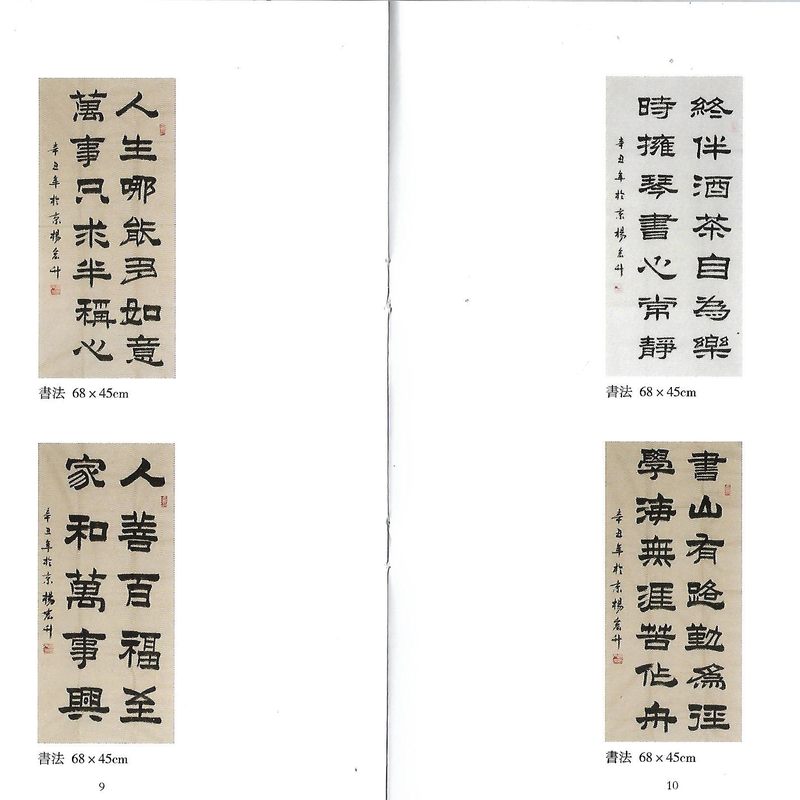 人生哪能多如意
萬事只求半稱心
辛丑年於京楊宏升
書法 68×45cm
人善百福至
家和萬事興
辛丑年於京楊宏升
書法 68×45cm
9
終伴酒茶自為樂
時擁琴書心常靜
辛丑年於京楊宏升
書法 68×45cm
書山有路勤為徑
學海無涯苦作舟
辛丑年於京楊宏升
書法 68×45cm
10